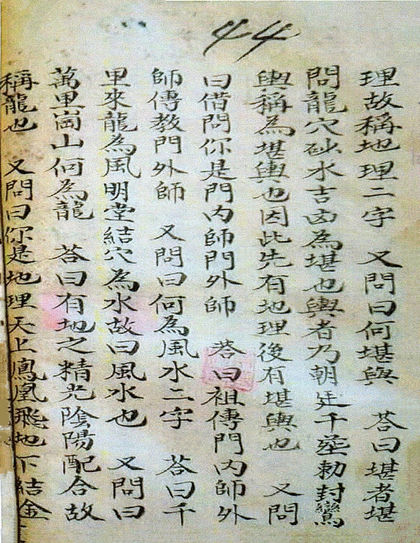 44
理故稱地理二字 又問曰何堪輿 答曰堪者堪
問龍穴砂水吉凶為堪也輿者乃朝廷千莖勅封鸞
輿稱為堪輿也因此先有地理後有堪輿也 又問
曰借問你是門內師門外師 答曰祖傳門內師外
師傳教門外師 又問曰何為風水二字 答曰千
里來龍為風明堂結穴為水故曰風水也 又問曰
萬里崗山何為龍 答曰有地之精光陰陽配合故
稱龍也 又問曰你是地理天上鳳凰飛地下結金